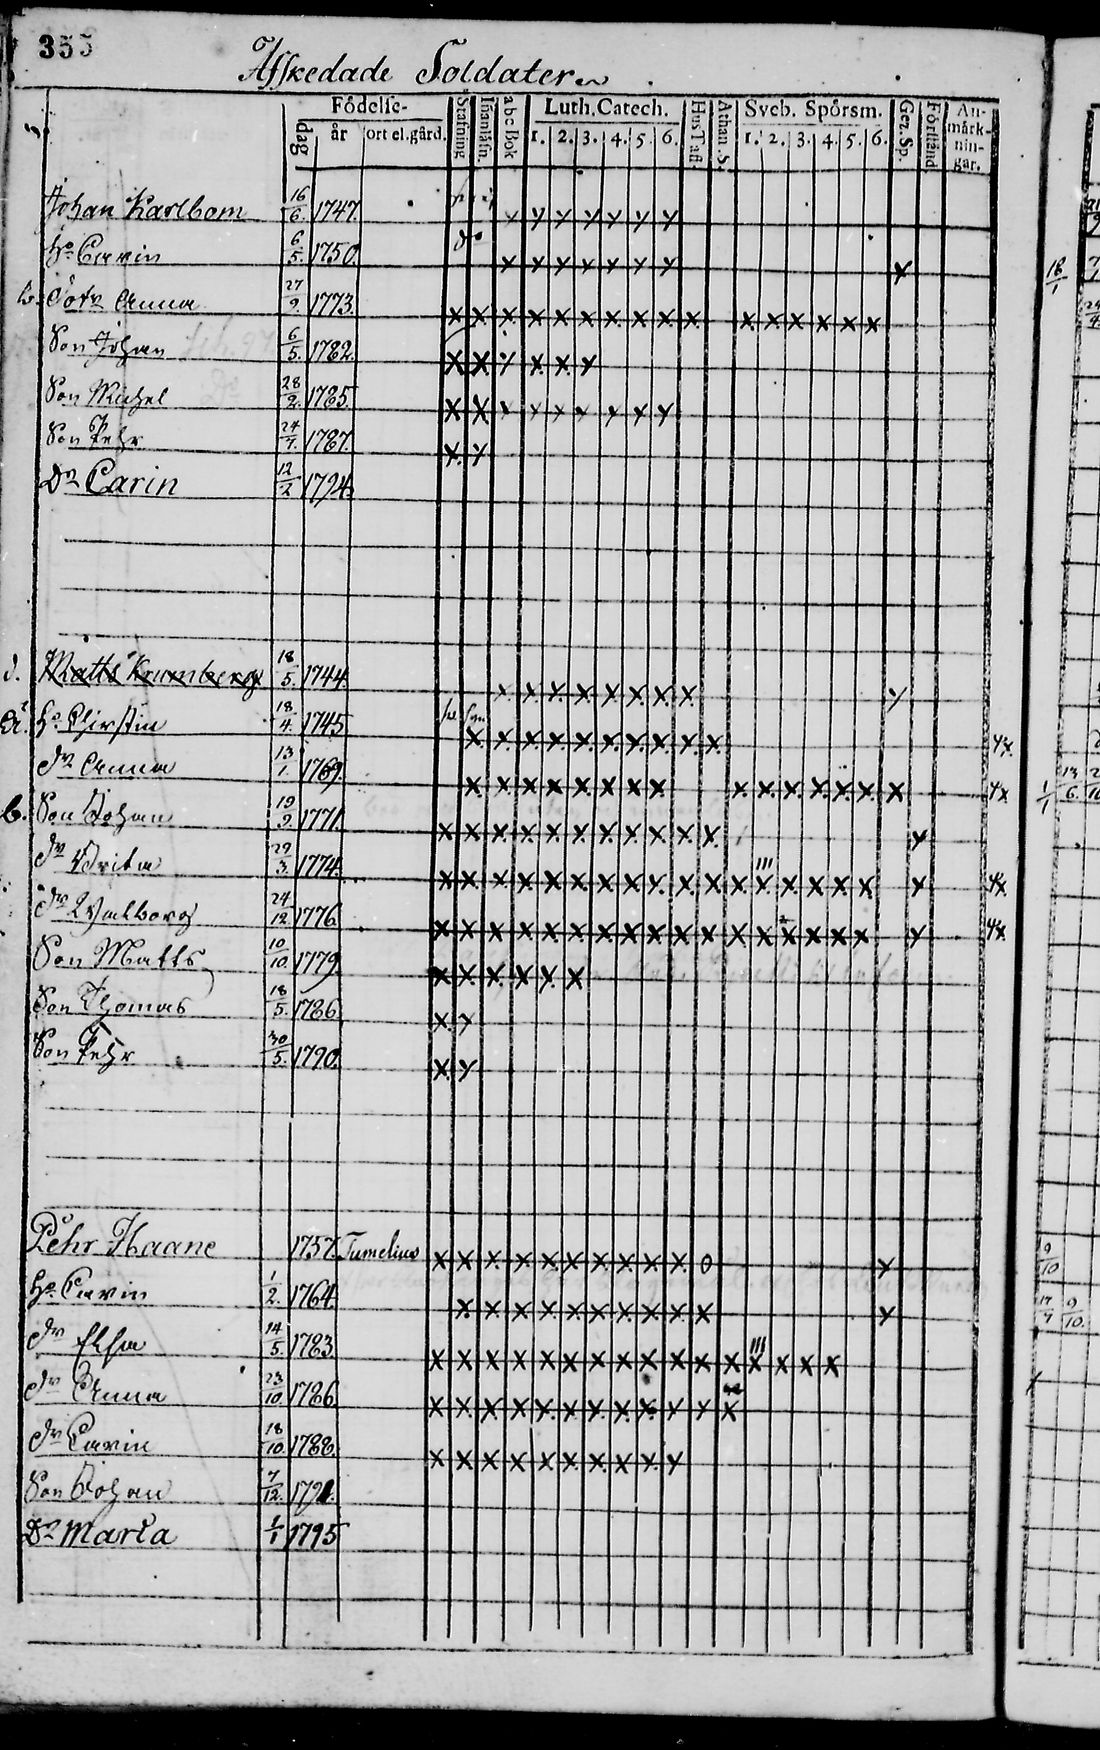 355
Afskedade Soldater
Födelse- Stafning Innanläsn. abc Bok Luth. Catech. Hus Tafl. Athan. S. Sveb. Spörsm. Gez. Sp. Förstånd An-märk-nin-gar.
dag år ort el. gård. 1. 2. 3. 4. 5. 6. 1. 2. 3. 4. 5. 6.
Johan Karlbom 16/6 1747.
Hº Carin 6/5. 1750.
b. Dotr Anna 27/9. 1773.
Son Johan 6/5. 1782.
Son Michel 28/2. 1785.
Son Pehr 24/7. 1787.
Dr Carin 12/2 1794.
d. Matts Krumberg 18/5. 1744.
Hº Chirstin 18/4. 1745
dr Anna 13/1. 1769.
b. Son Johan 19/9. 1771.
dr Brita 29/3. 1774.
dr Walborg 24/12 1776
Son Matts 10/10 1779
Son Thomas 18/5. 1786
Son Pehr 30/5. 1790.
Pehr Haane 1757. Tumelius
Hº Carin 1/2. 1764.
dr Elsa 14/5. 1783.
dr Anna 23/10. 1786.
dr Carin 18/10. 1788.
Son Johan 7/12. 1791.
Dr Maria 1/1 1795